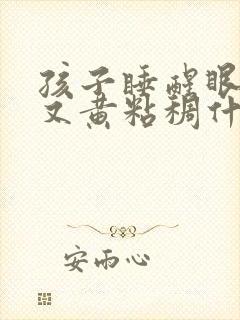 孩子睡醒眼
又黄粘稠什
安雨心